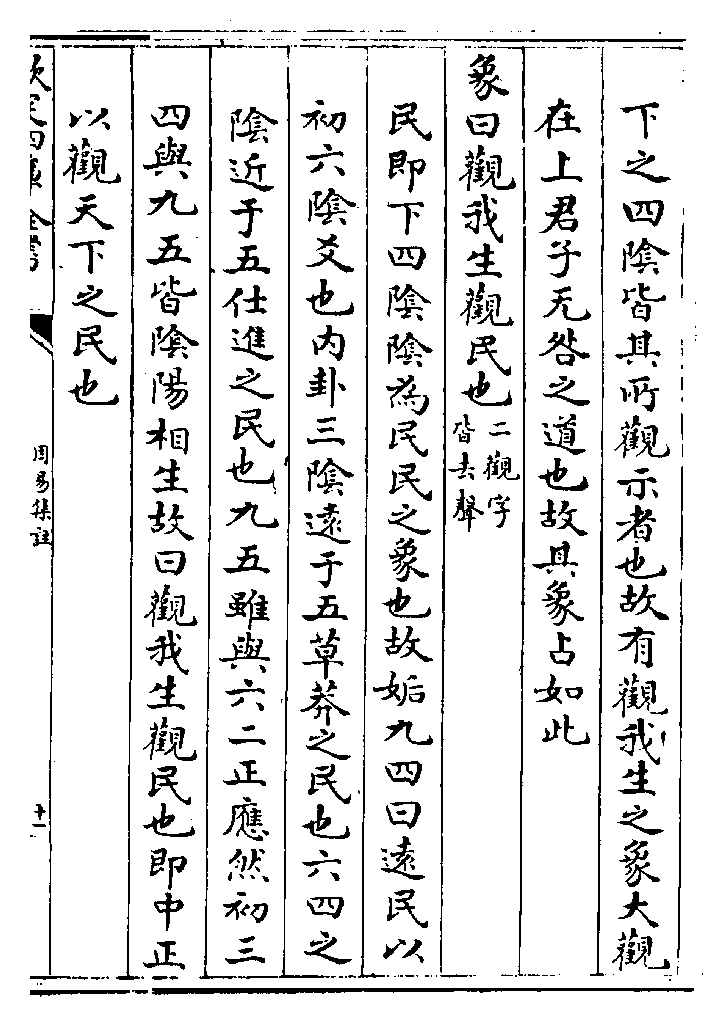 下之四陰皆其所觀示者也故有觀我生之象大觀
在上君子无咎之道也故其象占如此
象曰觀我生觀民也二觀字皆去聲
民即下四陰陰為民民之象也故姤九四曰遠民以
初六陰爻也内卦三陰遠于五草莽之民也六四之
陰近于五仕進之民也九五雖與六二正應然初三
四與九五皆陰陽相生故曰觀我生觀民也即中正
以觀天下之民也
欽定四庫全書
周易集註
十一